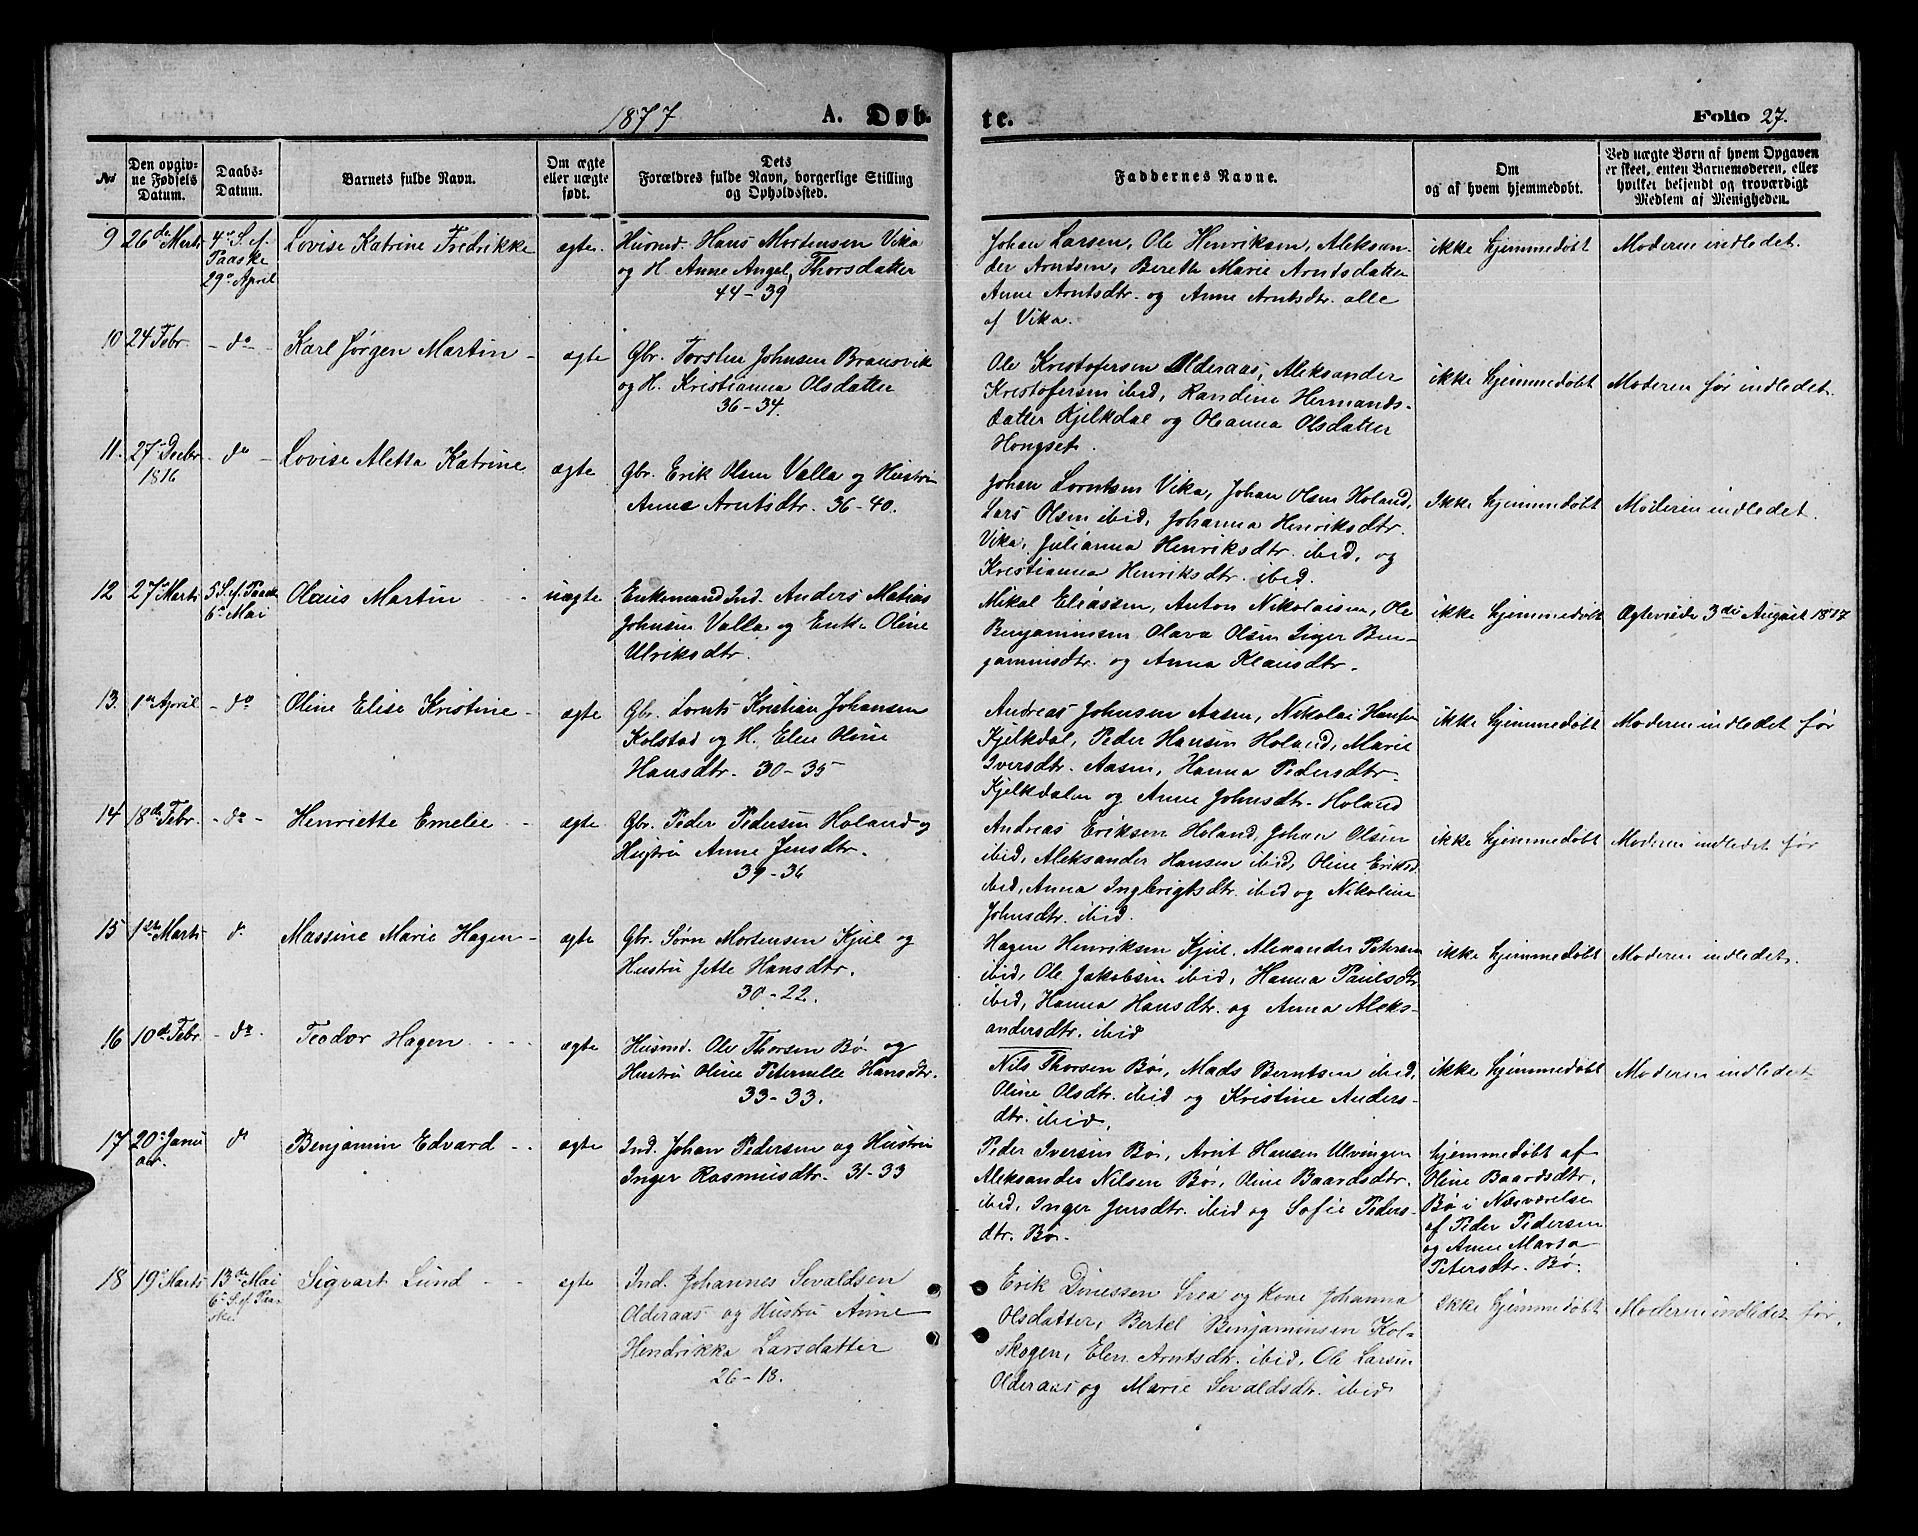 1877 A. Døb-
te.
Folio 27.
№
Den opgiv-
ne Fødsels
Datum.
Daabs-
Datum.
Barnets fulde Navn.
Om ægte
eller uægte
født.
Dets
Forældres fulde Navn, borgerlige Stilling
og Opholdssted.
Faddernes Navne.
Om
og af hvem hjemmedøbt.
Ved uægte Børn af hvem Opgaven
er skeet, enten Barnemoderen, eller
hvilket bekjendt og troværdigt
Medlem af Menigheden.
9 26de Marts
4de S. ef.
Paaske
29de April
Lovise Katrine Fredrikke
ægte.
Husmd. Hans Mortensen Vika
og H. Anne Angel, Thorsdatter
44-39
Johan Larsen, Ole Henriksen, Aleksan-
der Arntsen, Berette Marie Arntsdatter
Anne Arntsdtr. og Anne Arntsdtr. alle
af Vika.
ikke hjemmedøbt
Moderen indledet.
10 24 Febr.
- do -
Karl Jørgen Martin -
ægte
Gbr. Torsten Johnsen Bransvik
og H. Kristianna Olsdatter
36-34.
Ole Kristofersen Alderaas, Aleksander
Kristofersen ibid, Randine Hermands-
datter Kjelkdal og Oleanna Olsdatter
Hongset.
ikke hjemmedøbt
Moderen før indledet.
11. 27de Decbr
1876
- do -
Lovise Aletta Katrine
ægte
Gbr. Erik Olsen Valla og Hustru
Anne Arntsdtr. 36-40.
Johan Lorntsen Vika, Johan Olsen Holand,
Lars Olsen ibid, Johanna Henriksdtr.
Vika, Julianna Henriksdtr. ibid, og
Kristianna Henriksdtr. ibid.
Ikke hjemmedøbt
Moderen indledet.
12 27de Marts
5 S. ef. Paaske
6te Mai
Olaus Martin
uægte
Enkemand Ind. Anders Matias
Johnsen Valla og Enke Oline
Ulriksdtr.
Mikal Eliassen, Anton Nikolaisen, Ole
Benjaminsen, Olava Olsen Inger Ben-
jaminsdtr. og Anna Klausdtr.
ikke hjemmedøbt
Ægteviede 3die August 1877
13. 1ste April
- do
Oline Elise Kristine -
ægte
Gbr. Lornts Kristian Johansen
Kolstad og H. Elen Oline
Hansdtr. 30-35
Andreas Johnsen Aasen, Nikolai Hansen
Kjelkdal, Peder Hansen Holand, Marie
Iversdtr. Aasen, Hanna Pedersdtr.
Kjelkdalen og Anne Johnsdtr. Holand
ikke hjemmedøbt
Moderen indledet før
14 18de Febr.
- do -
Henriette Emelie
ægte
Gbr. Peder Pedersen Holand og
Hustru Anne Jensdtr.
39-36
Andreas Eriksen Holand, Johan Olsen
ibid, Aleksander Hansen ibid, Oline Eriksd.
ibid, Anna Ingbrigtsdtr. ibid og Nikoline
Johnsdtr. ibid.
ikke hjemmedøbt
Moderen indledet før
15 1ste Marts
do
Massine Marie Hagen -
ægte
Gbr. Sørn Mortensen Kjul og
Hustru Jette Hansdtr.
30-22.
Hagen Henriksen Kjul, Alexander Petersen
ibid, Ole Jakobsen ibid, Hanna Paulsdtr.
ibid, Hanna Hansdtr. og Anna Aleks-
andersdtr. ibid
ikke hjemmedøbt
Moderen indledet.
16 10de Febr.
- do -
Teodor Hagen
ægte
Husmd. Ole Thorsen Bø og
Hustru Oline Peternelle Hansdtr.
33-33.
Nils Thorsen Bø, Mads Berntsen ibid,
Oline Olsdtr. ibid og Kristine Anders-
dtr. ibid.
ikke hjemmedøbt
Moderen indledet
17 20de Janu
ar.
do
Benjamin Edvard
ægte
Ind. Johan Pedersen og Hustru
Inger Rasmusdtr. 31-33
Peder Iversen Bø, Arnt Hansen Ulvingen
Aleksander Nilsen Bø, Oline Baardsdtr.
ibid, Inger Jensdtr. ibid og Sofie Peders-
dtr. Bø.
hjemmedøbt af
Oline Baardsdtr.
Bø i Nærværelse
af Peder Pedersen
og Anne Marta
Petersdtr. Bø.
18 19de Marts
13de Mai
6te S. ef. Paa-
ske.
Sigvart Lund
ægte
Ind. Johannes Sevaldsen
Olderaas og Hustru Anne
Hendrikka Larsdatter
26-18.
Erik Dinessen Srea og Kone Johanna
Olsdatter, Bertel Benjaminsen Kol-
skogen, Elen Arntsdtr. ibid, Ole Larsen
Olderaas og Marie Sevaldsdtr. ibid
ikke hjemmedøbt
Moderen indledet før.